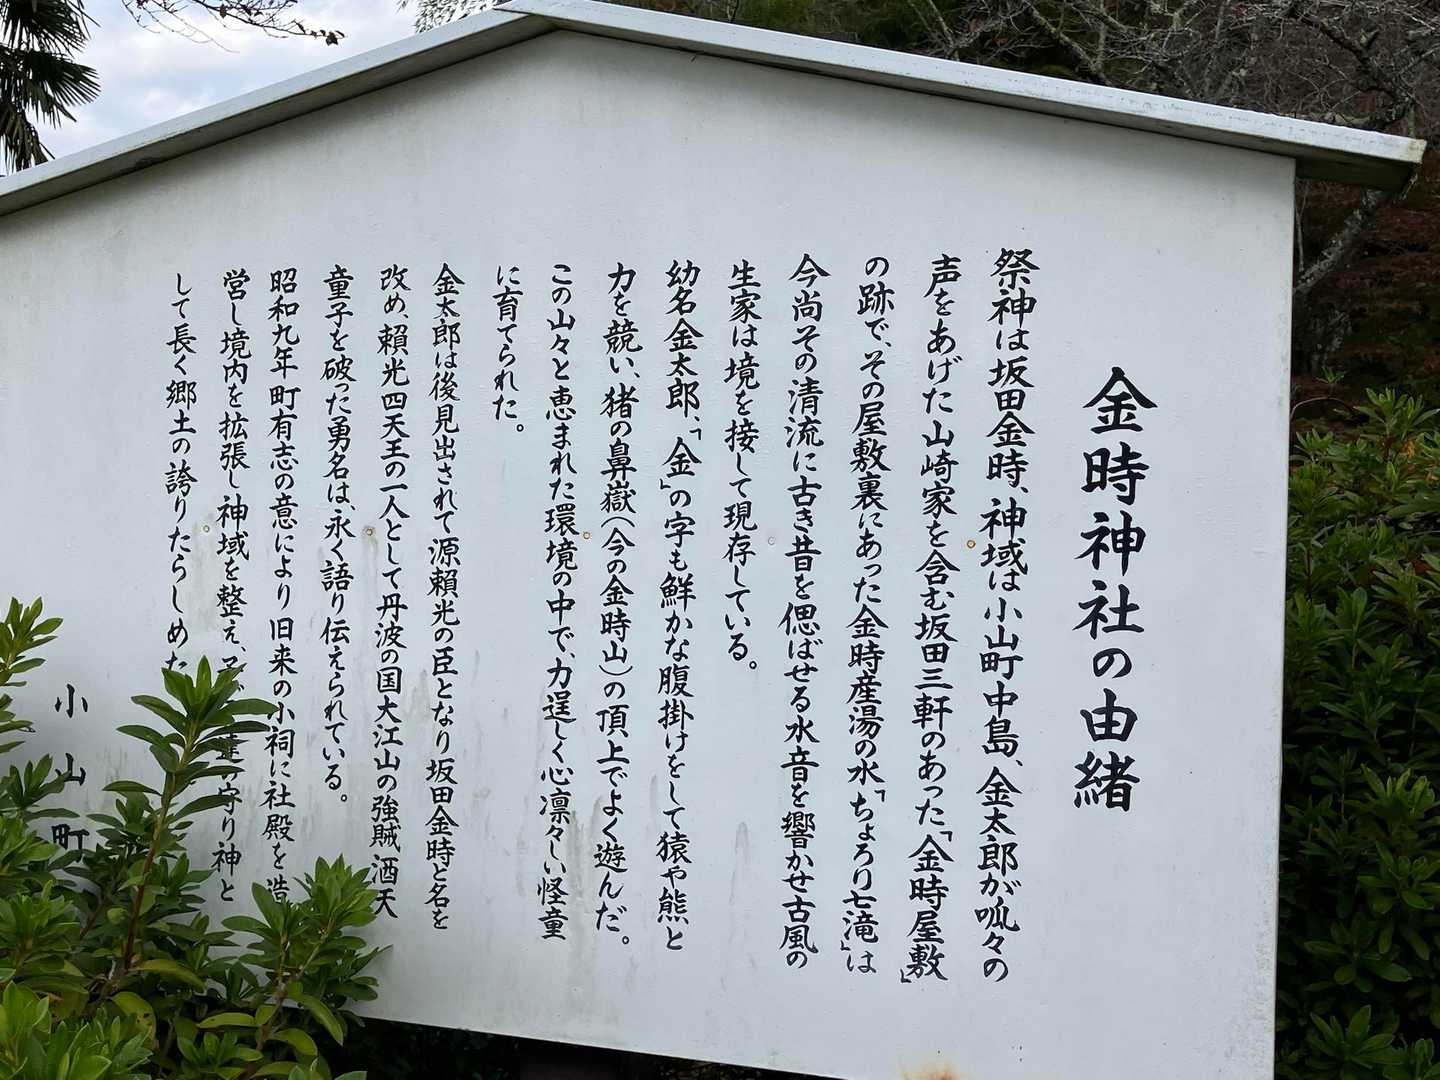 金時神社の由緒
祭神は坂田金時、神域は小山町中島、金太郎が呱々の
声をあげた山崎家を含む坂田三軒のあった「金時屋敷」
の跡で、その屋敷裏にあった金時産湯の水「ちょろり七滝」は
今尚その清流に古き昔を偲ばせる水音を響かせ古風の
生家は境を接して現存している。
幼名金太郎、「金」の字も鮮かな腹掛けをして猿や熊と
力を競い、猪の鼻嶽(今の金時山)の頂上でよく遊んだ。
この山々と恵まれた環境の中で、力逞しく心凛々しい怪童
に育てられた。
金太郎は後見出されて源頼光の臣となり坂田金時と名を
改め、頼光四天王の一人として丹波の国大江山の強賊酒天
童子を破った勇名は、永く語り伝えられている。
昭和九年町有志の意により旧来の小祠に社殿を造
営し境内を拡張し神域を整え、守り神と
して長く郷土の誇りたらしめた
小山町